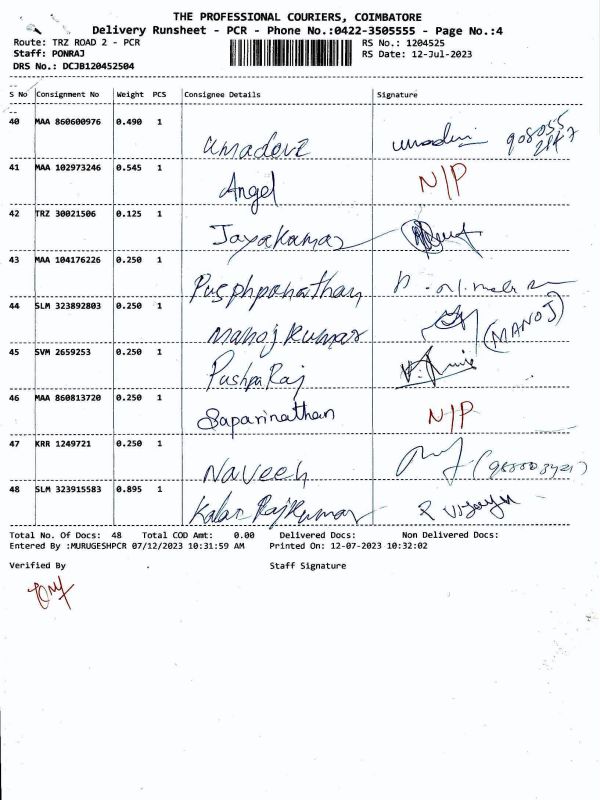 THE PROFESSIONAL COURIERS, COIMBATORE
Delivery Runsheet - PCR - Phone No.:0422-3505555 - Page No.:4
Route: TRZ ROAD 2 - PCR RS No.: 1204525
Staff: PONRAJ RS Date: 12-Jul-2023
DRS No.: DCJB120452504
S No Consignment No Weight PCS Consignee Details Signature
40 MAA 860600976 0.490 1 Umadevi umadevi
41 MAA 102973246 0.545 1 Angel N/P
42 TRZ 30021506 0.125 1 Jayakumar
43 MAA 104176226 0.250 1 Pusphpanathan
44 SLM 323892803 0.250 1 Manoj kumar (MANOJ)
45 SVM 2659253 0.250 1 Pushpa Raj
46 MAA 860813720 0.250 1 Saparinathan N/P
47 KRR 1249721 0.250 1 Naveen
48 SLM 323915583 0.895 1 Rajkumar
Total No. Of Docs: 48 Total COD Amt: 0.00 Delivered Docs: Non Delivered Docs:
Entered By :MURUGESHPCR 07/12/2023 10:31:59 AM Printed On: 12-07-2023 10:32:02
Verified By Staff Signature